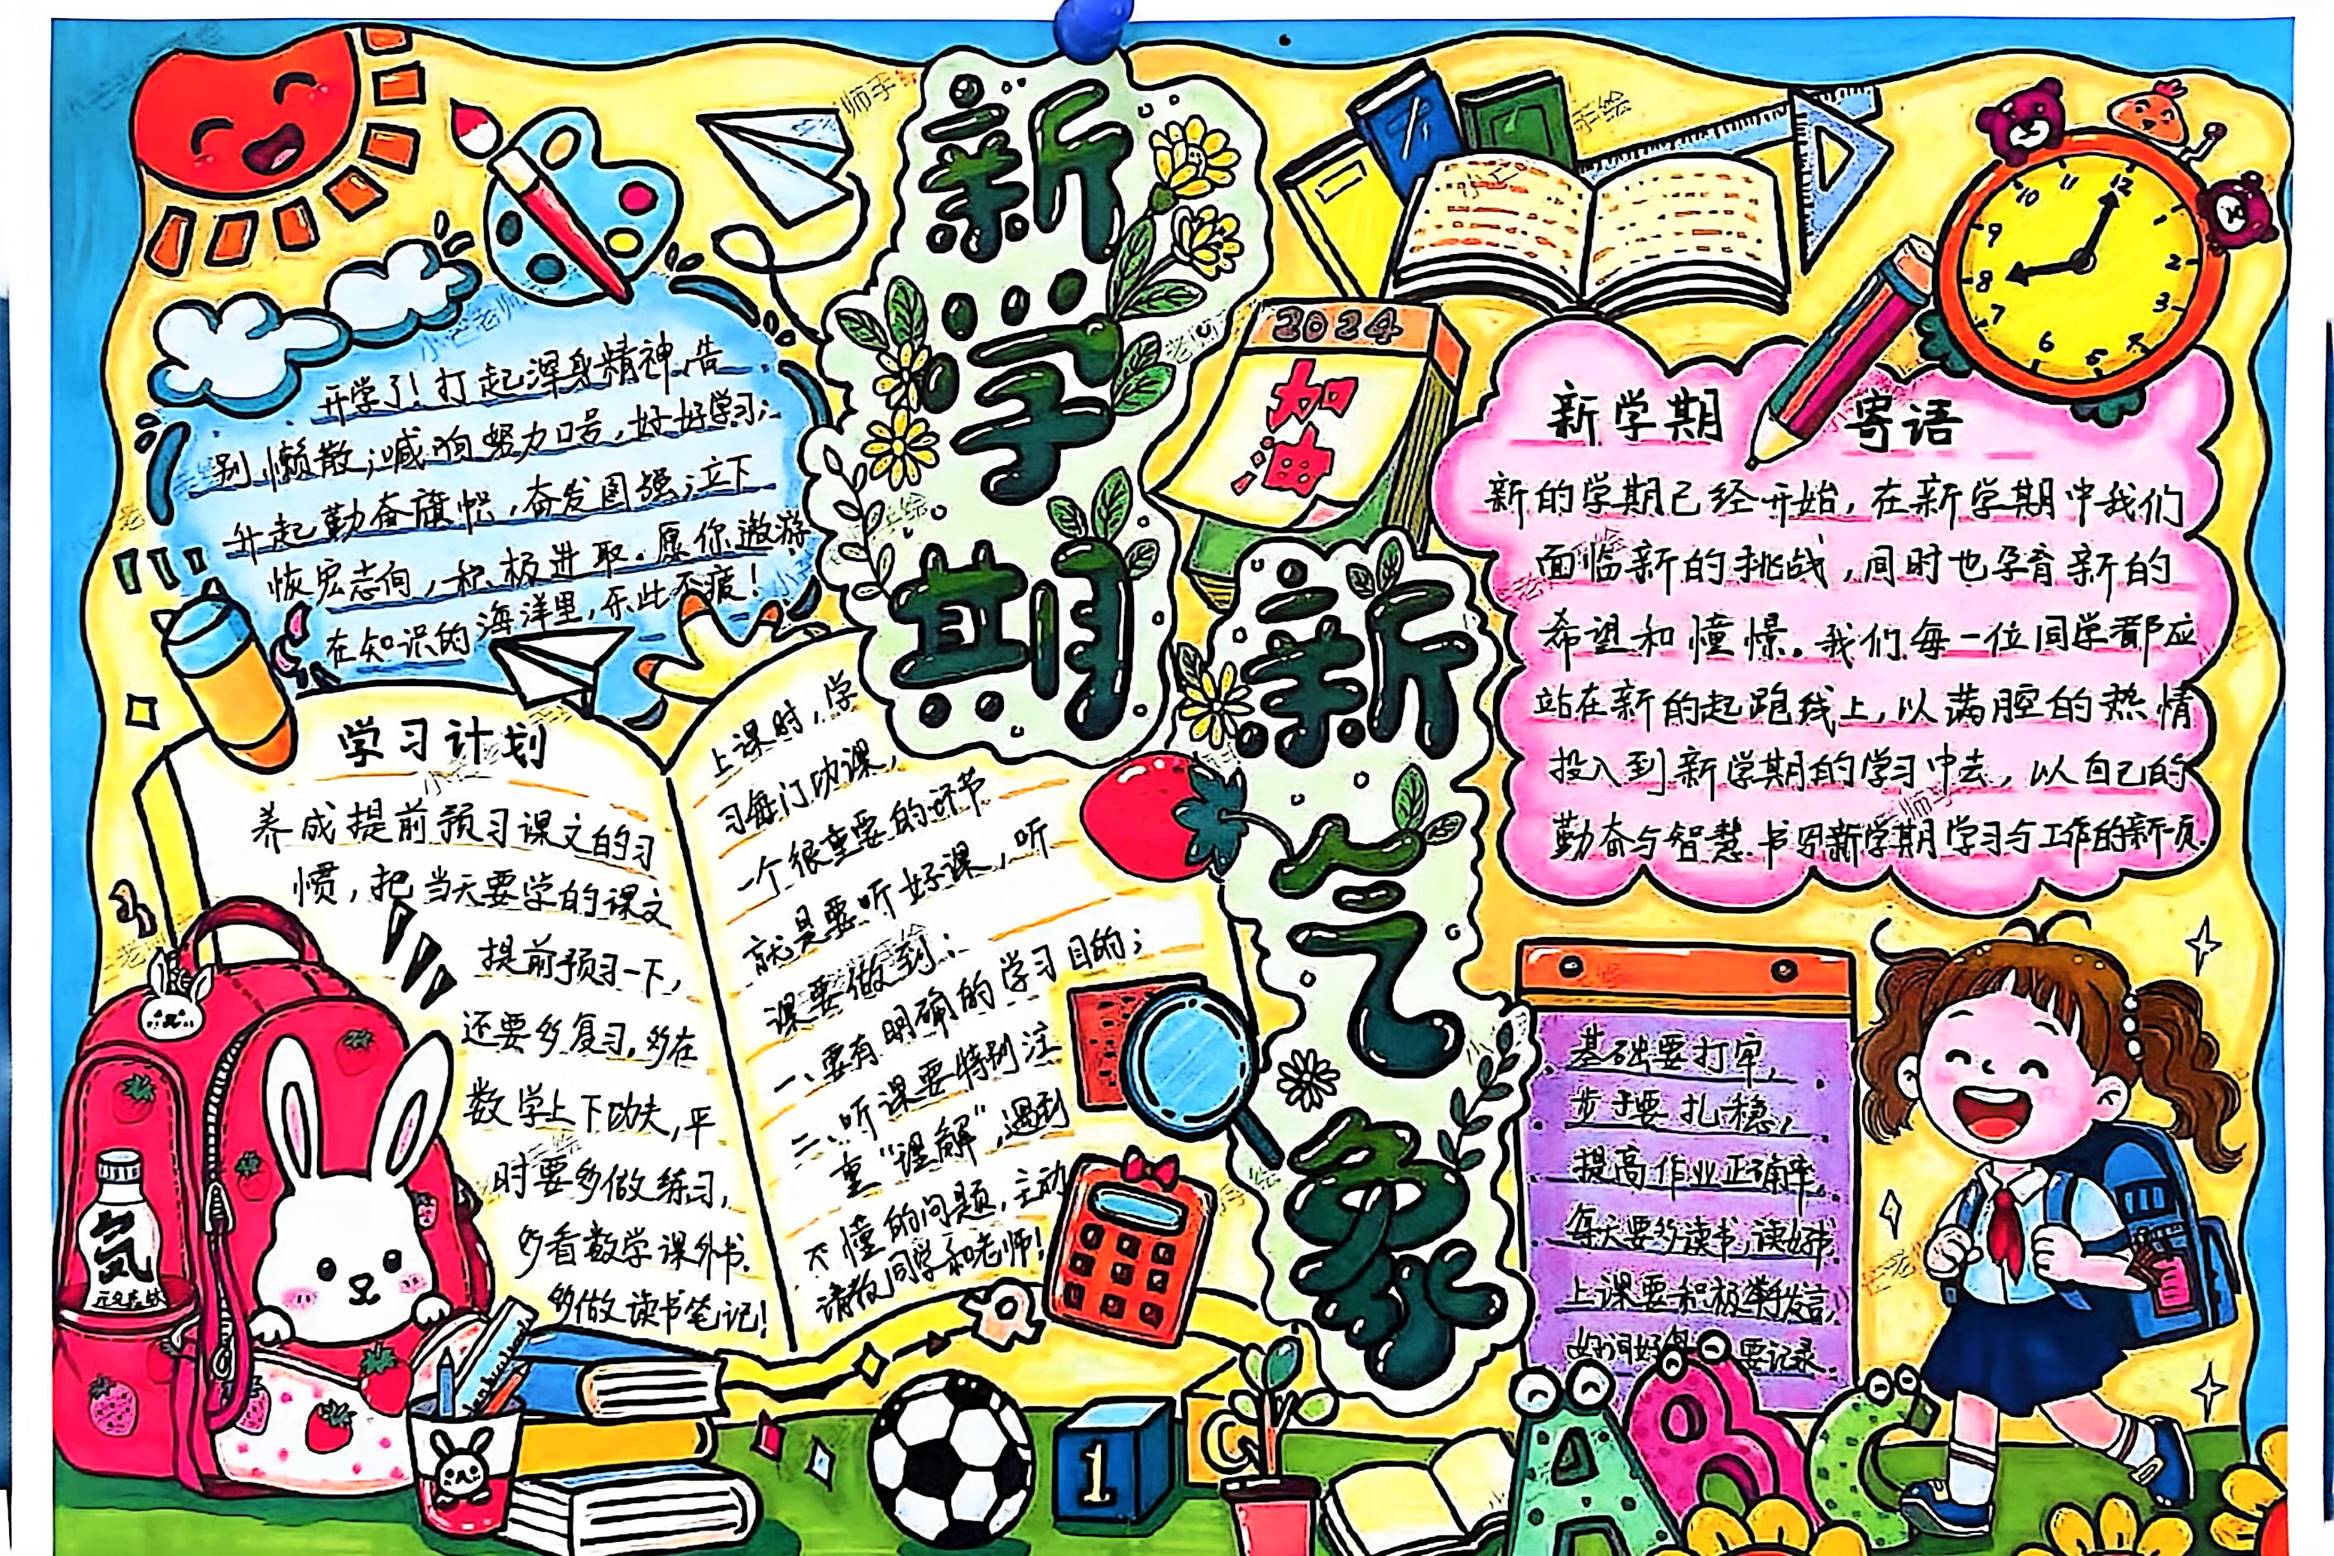 新学期
新气象
开学了！打起浑身精神，告
别懒散；喊响努力口号，好好学习；
升起勤奋旗帜，奋发图强；立下
恢宏志向，积极进取。愿你遨游
在知识的海洋里，乐此不疲！
2024
加油
新学期 寄语
新的学期已经开始，在新学期中我们
面临新的挑战，同时也孕育新的
希望和憧憬。我们每一位同学都应
站在新的起跑线上，以满腔的热情
投入到新学期的学习中去，以自己的
勤奋与智慧书写新学期学习与工作的新页。
学习计划
养成提前预习课文的习
惯，把当天要学的课文
提前预习一下，
还要多复习，多在
数学上下功夫，平
时要多做练习，
多看数学课外书.
多做读书笔记！
上课时，学
习每门功课，
一个很重要的环节
就是要听好课，听
课要做到：
一、要有明确的学习目的；
二、听课要特别注
重“理解”，遇到
不懂的问题，主动
请教同学和老师！
基础要打牢，
步子要扎稳，
提高作业正确率，
每天要多读书，读好书，
上课要积极举手发言，
好词好 要记录.
元气森林
气
12
11
10
9
8
7
6
5
3
2
1
1
A B C